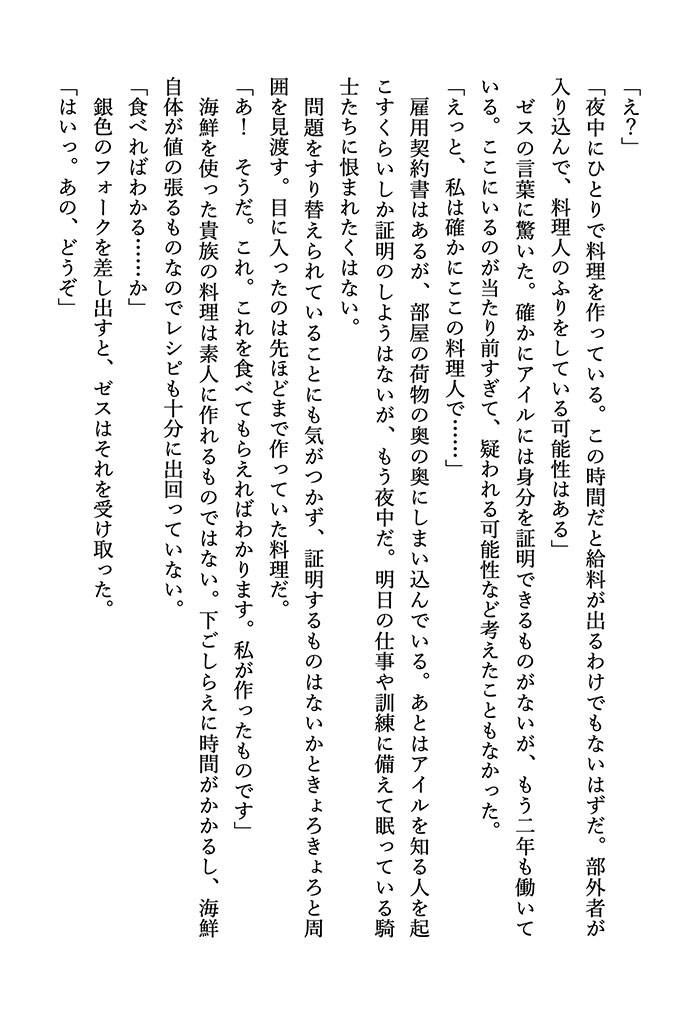 「え？」
「夜中にひとりで料理を作っている。この時間だと給料が出るわけでもないはずだ。部外者が
入り込んで、料理人のふりをしている可能性はある」
　ゼスの言葉に驚いた。確かにアイルには身分を証明できるものがないが、もう二年も働いて
いる。ここにいるのが当たり前すぎて、疑われる可能性など考えたこともなかった。
「えっと、私は確かにここの料理人で……」
　雇用契約書はあるが、部屋の荷物の奥の奥にしまい込んでいる。あとはアイルを知る人を起
こすくらいしか証明のしようはないが、もう夜中だ。明日の仕事や訓練に備えて眠っている騎
士たちに恨まれたくはない。
　問題をすり替えられていることにも気がつかず、証明するものはないかときょろきょろと周
囲を見渡す。目に入ったのは先ほどまで作っていた料理だ。
「あ！　そうだ。これ。これを食べてもらえればわかります。私が作ったものです」
　海鮮を使った貴族の料理は素人に作れるものではない。下ごしらえに時間がかかるし、海鮮
自体が値の張るものなのでレシピも十分に出回っていない。
「食べればわかる……か」
　銀色のフォークを差し出すと、ゼスはそれを受け取った。
「はいっ。あの、どうぞ」